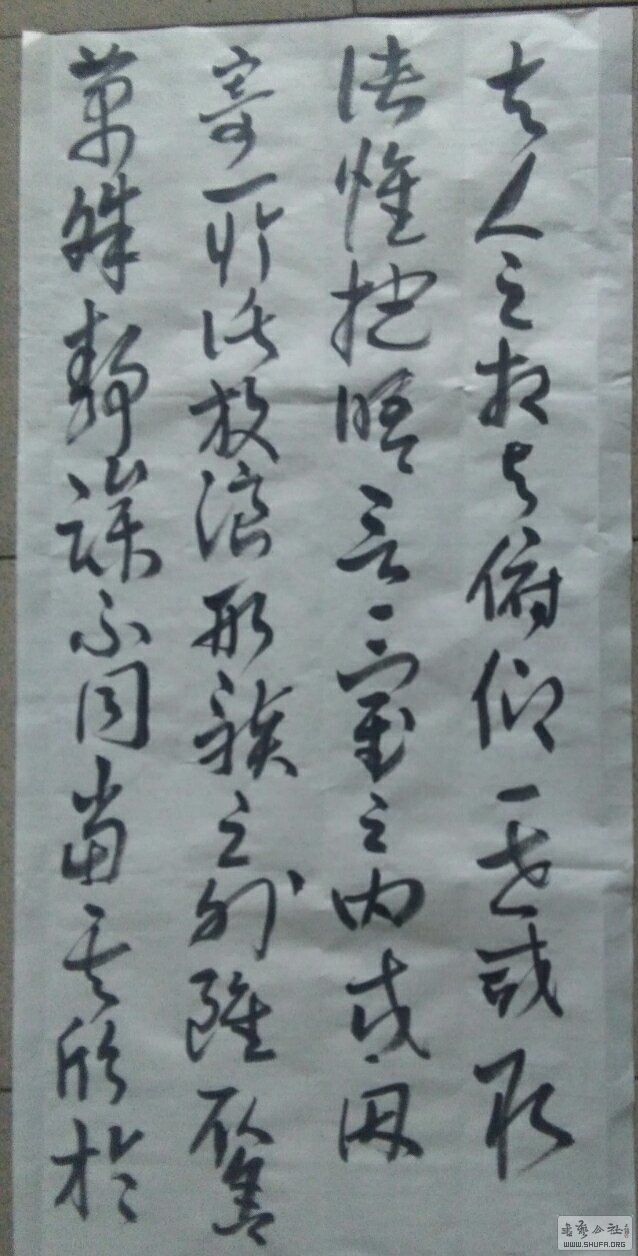 夫人之相與俯仰一世或取
諸懷抱晤言一室之内或因
寄所託放浪形骸之外雖取舍
萬殊靜躁不同當其欣於
书艺公社
WWW.SHUFA.ORG